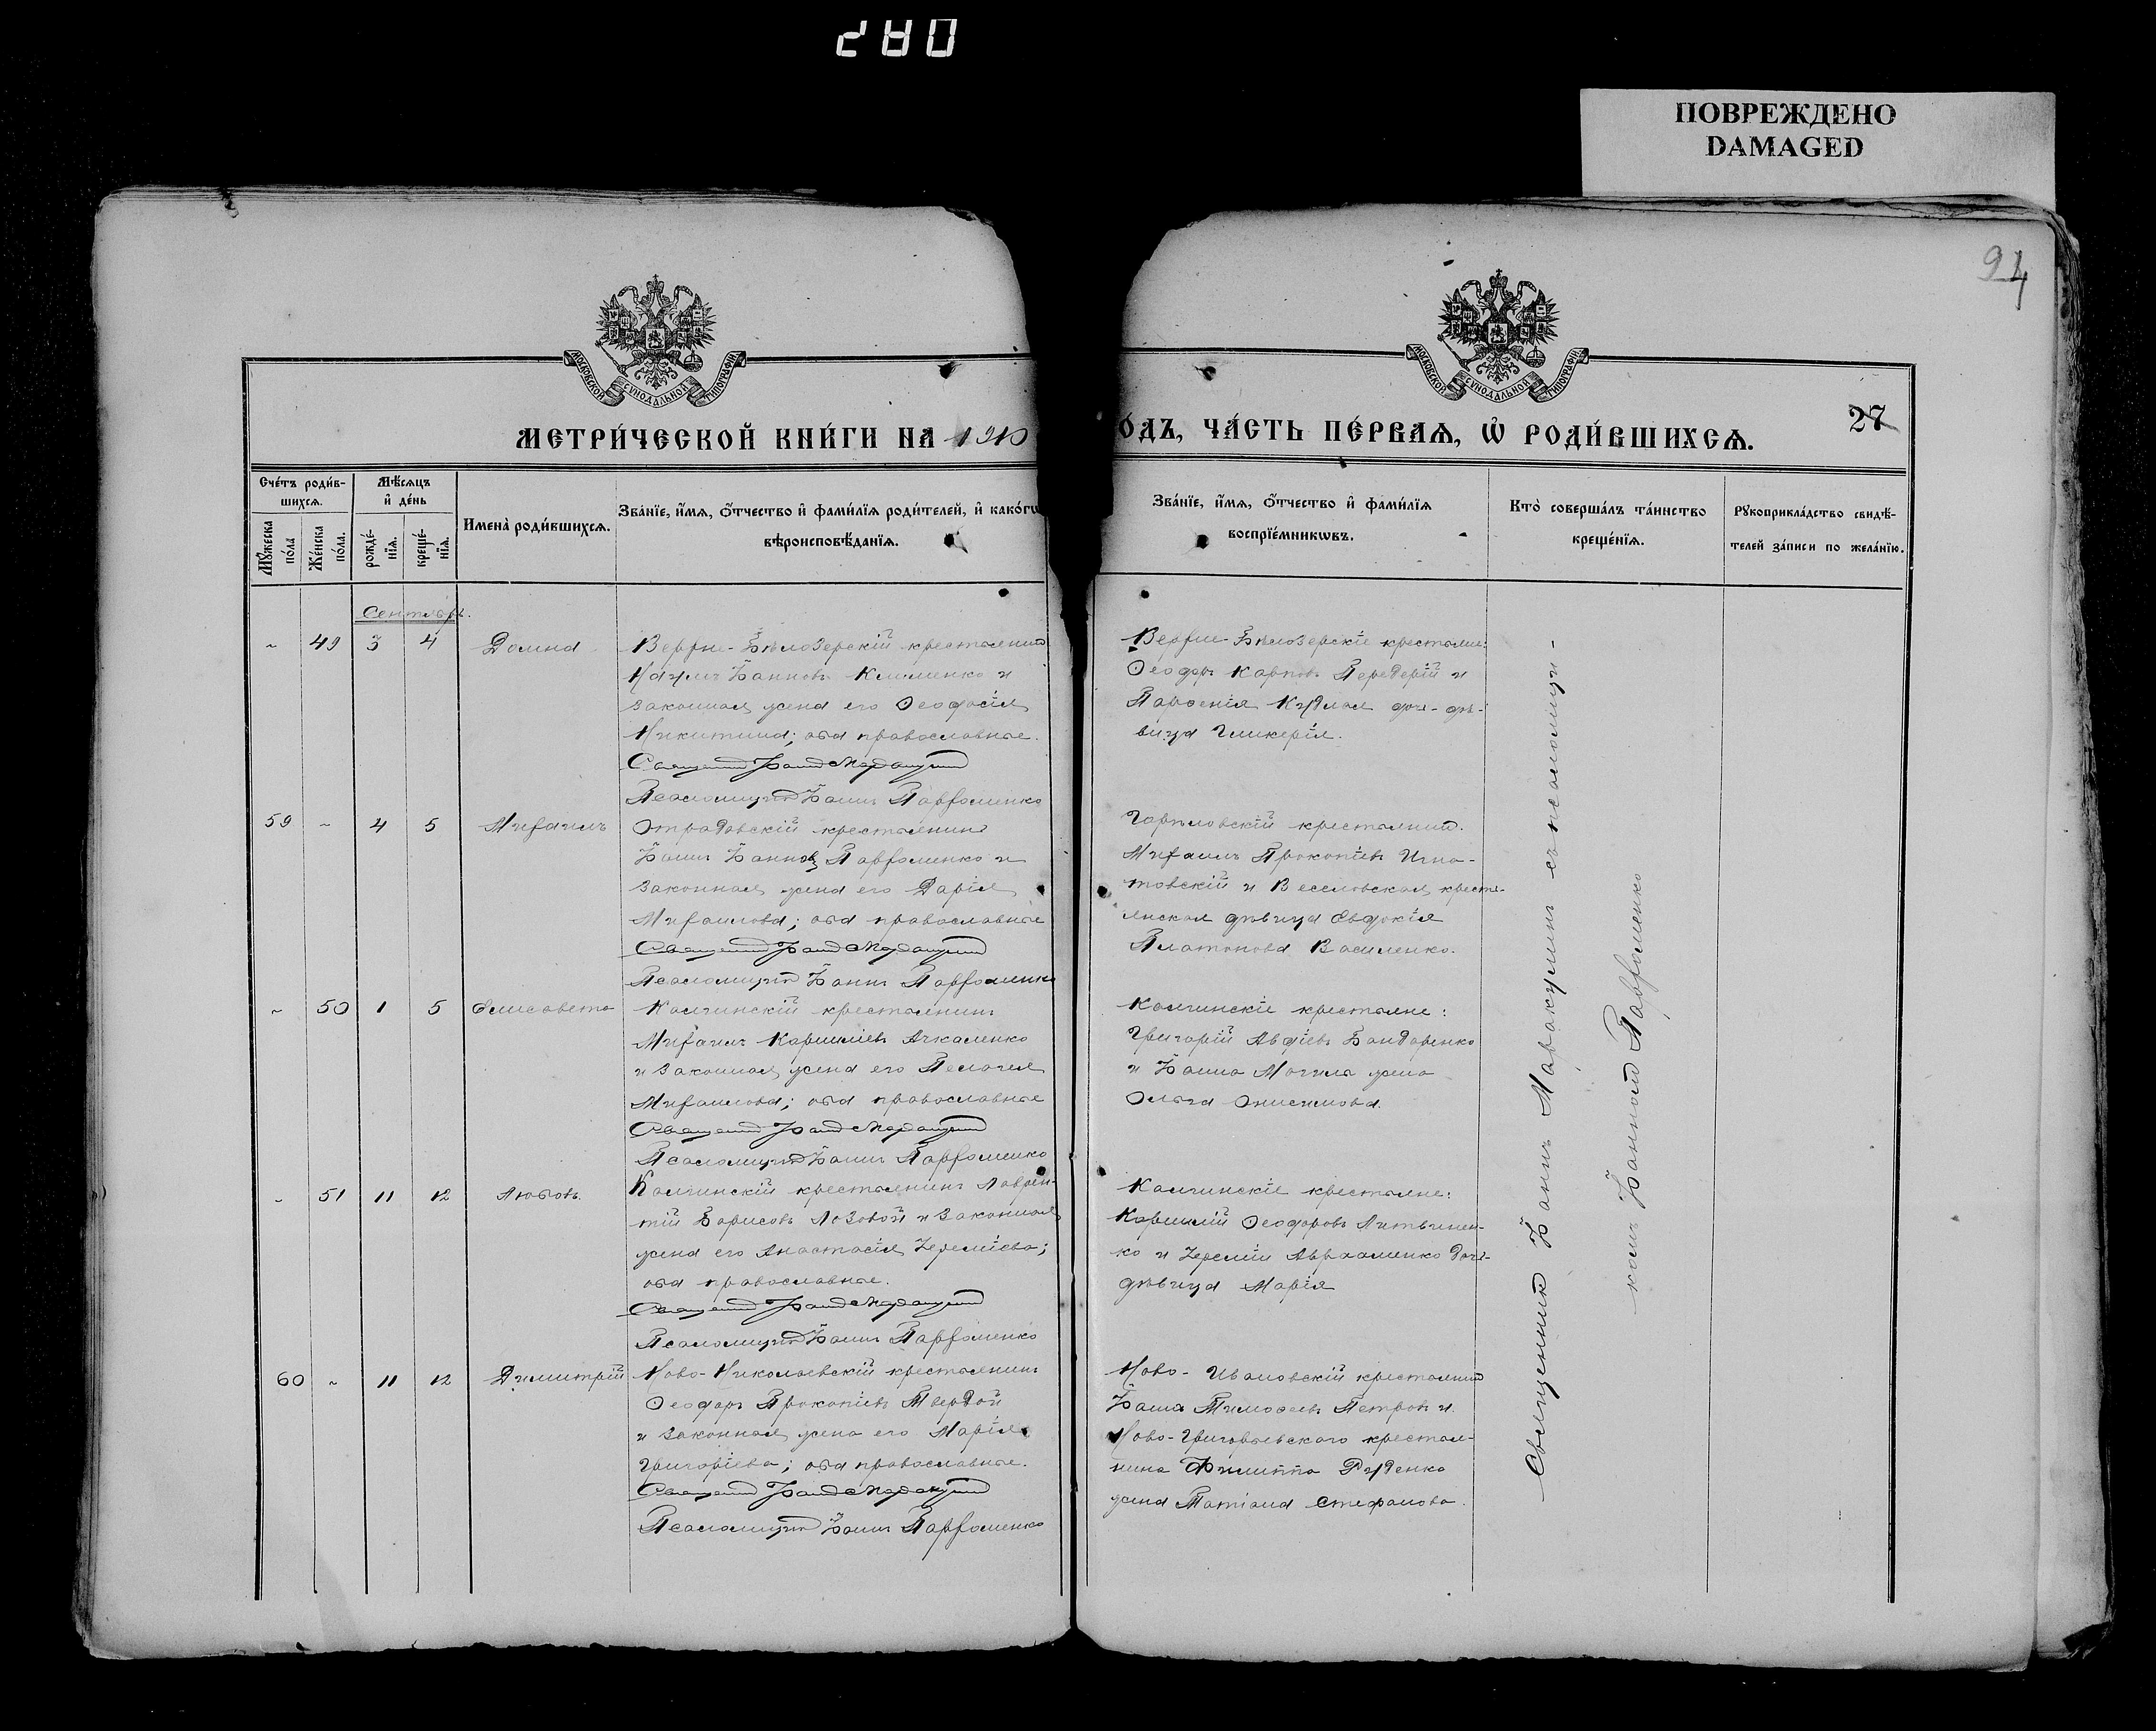 280
ПОВРЕЖДЕНО
DAMAGED
94
МОСКОВСКОЙ СУНОДАЛЬНОЙ ТИПОГРАФІИ
МОСКОВСКОЙ СУНОДАЛЬНОЙ ТИПОГРАФІИ
МЕТРИ́ЧЕСКОЙ КНИ́ГИ НА 1910
О́ДЪ, ЧА́СТЬ ПЕ́РВАѦ, Ѡ҆ РОДИ́ВШИХСѦ.
27
Сче́тъ роди́в-
шихсѧ.
Мѣ́сѧцъ
и҆ де́нь
Мꙋ́жеска
по́ла
Же́нска
по́ла.
рожде́-
нїѧ.
креще́-
нїѧ.
Имена̀ роди́вшихсѧ.
Зва́нїе, и҆́мѧ, ѻ҆́тчество и҆ фами́лїѧ роди́телей, и҆ како́гѡ
вѣроисповѣ́данїѧ.
Зва́нїе, и҆́мѧ, ѻ҆́тчество и҆ фами́лїѧ
воспрїе́мникѡвъ.
Кто̀ соверша́лъ та́инство
креще́нїѧ.
Рꙋкоприкла́дство свидѣ́-
телей за́писи по жела́нїю.
Сентябрь.
~ 49 3 4 Домна
Верхне-Бѣлозерскій крестьянинъ
Наумъ Іоанновъ Клименко и
законная жена его Ѳеодосія
Никитина; оба православные.
Священникъ Іоаннъ
Псаломщикъ Іоаннъ Пархоменко
Верхне-Бѣлозерскіе крестьяне:
Ѳеодоръ Карповъ Передерій и
Парѳенія дочь-дѣ-
вица Гликерія.
59 ~ 4 5 Михаилъ
Отрадовскій крестьянинъ
Іоаннъ Іоанновъ Пархоменко и
законная жена его Дарія
Михаилова; оба православные
Священникъ Іоаннъ
Псаломщикъ Іоаннъ Пархоменко
крестьянинъ
Михаилъ Прокопіевъ Игна-
товскій и Веселовская кресть-
янская дѣвица Евдокія
Платонова Василенко.
~ 50 1 5 Елисавета
Калчинскій крестьянинъ
Михаилъ Корниліевъ Ачкаленко
и законная жена его Пелагея
Михаилова; оба православные
Священникъ Іоаннъ
Псаломщикъ Іоаннъ Пархоменко
Калчинскіе крестьяне:
Григорій Авдіевъ Бондаренко
и Іоанна Могила жена
Ольга Онисимова.
~ 51 11 12 Любовь
Калчинскій крестьянинъ Лаврен-
тій Борисовъ Лозовой и законная
жена его Анастасія Іереміева;
оба православные.
Священникъ Іоаннъ
Псаломщикъ Іоаннъ Пархоменко
Калчинскіе крестьяне:
Корнилій Ѳеодоровъ Литвинен-
ко и Іереміи Авраменко дочь-
дѣвица Марія
60 ~ 11 12 Димитрій
Ново-Николаевскій крестьянинъ
Ѳеодоръ Прокопіевъ Твердой
и законная жена его Марія
Григоріева; оба православные.
Священникъ Іоаннъ
Псаломщикъ Іоаннъ Пархоменко
Ново-Ивановскій крестьянинъ
Іоаннъ Тимоѳеевъ Петровъ и
Ново-Григорьевского крестья-
нина Филиппа Руденко
жена Татіана Стефанова.
Священникъ Іоаннъ съ псаломщи-
комъ Іоанномъ Пархоменко